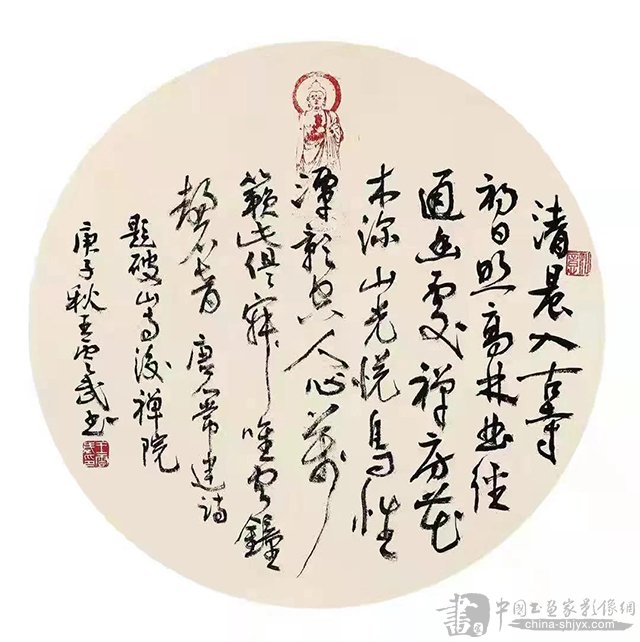 清晨入古寺
初日照高林曲径
通幽處禅房花
木深山光悦鸟性
潭影空人心萬
籁此俱寂唯闻鐘
磬音 唐人常建诗
题破山寺後禅院
庚子秋王雲武书
書
中國书画家影像網
china-shjyx.com